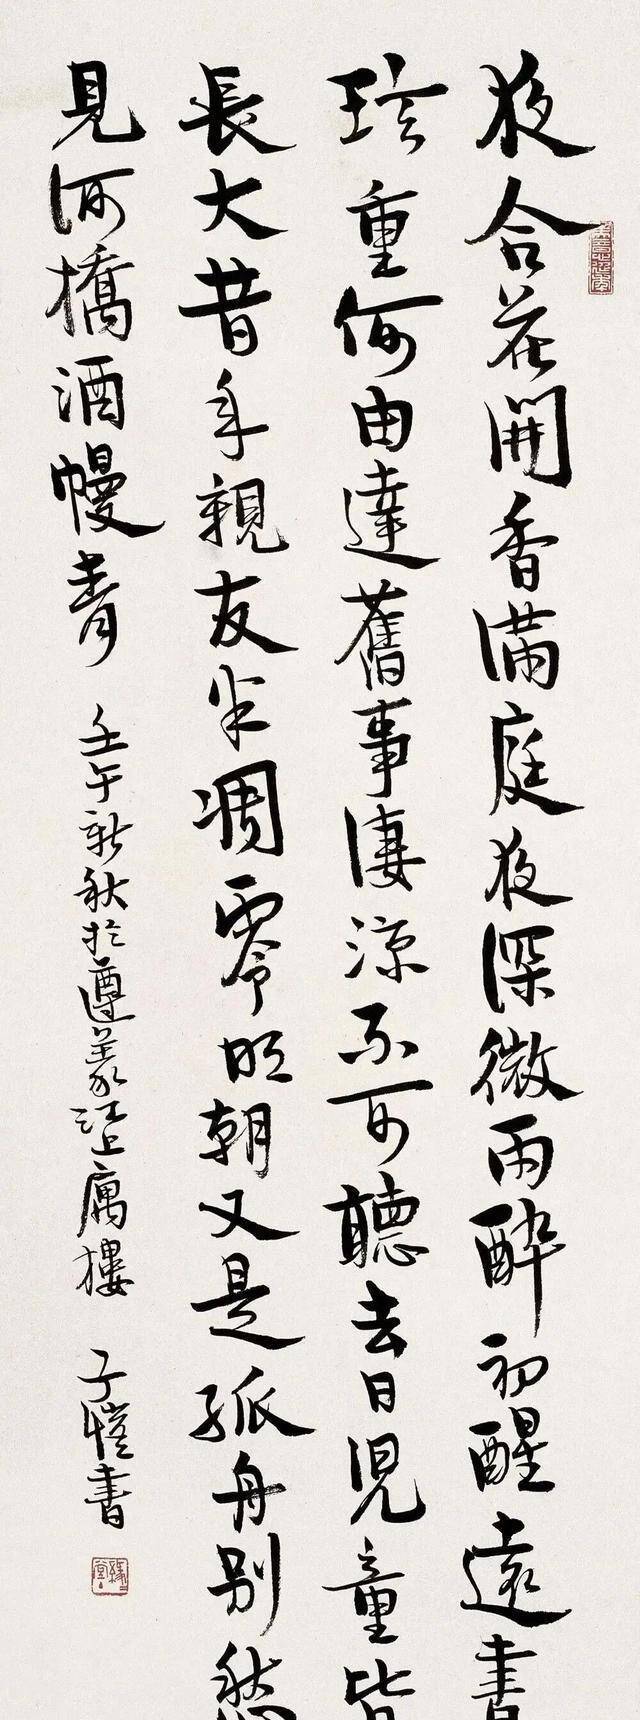 夜合花開香滿庭夜深微雨醉初醒遠書
珍重何由達舊事淒涼不可聽去日兒童皆
長大昔年親友半凋零明朝又是孤舟別愁
見河橋酒幔青
壬午新秋於遵義江上寓樓 子愷書
緣緣堂